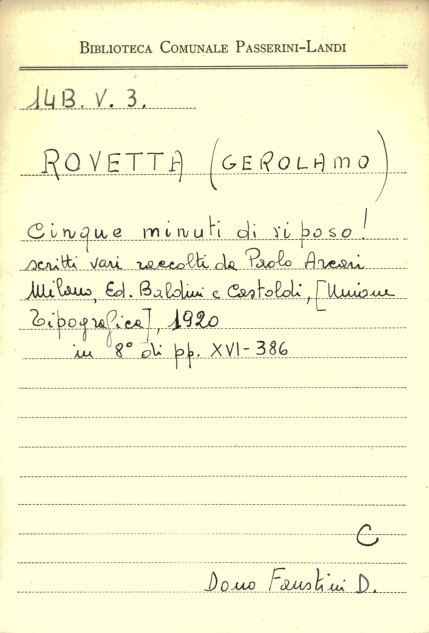 BIBLIOTECA COMUNALE PASSERINI-LANDI
14B. V. 3.
ROVETTA (GEROLAMO)
Cinque minuti di riposo!
scritti vari raccolti da Paolo Arcari
Milano, Ed. Baldini e Castoldi, [Unione
Tipografica], 1920
in 8° di pp. XVI-386
C
Dono Faustini D.